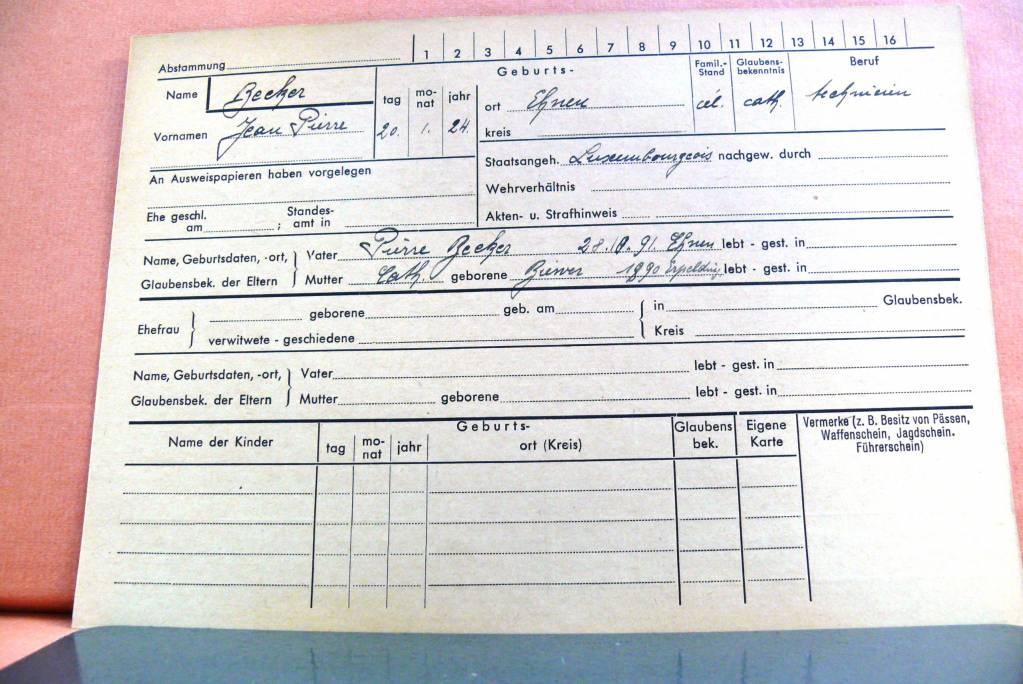 Abstammung 1 2 3 4 5 6 7 8 9 10 11 12 13 14 15 16
Name Becker
Vornamen Jean Pierre
Geburts-
tag mo-nat jahr
20. 1. 24.
ort Ehnen
kreis
Famil.-Stand
cél.
Glaubens-bekenntnis
cath.
Beruf
technicien
An Ausweispapieren haben vorgelegen
Staatsangeh. Luxembourgeois nachgew. durch
Wehrverhältnis
Ehe geschl. am ; Standes-amt in
Akten- u. Strafhinweis
Name, Geburtsdaten, -ort, Glaubensbek. der Eltern
Vater Pierre Becker 28.10.91. Ehnen lebt - gest. in
Mutter Cath. geborene Biewer 1890 Erpelding lebt - gest. in
Ehefrau
geborene geb. am in Glaubensbek.
verwitwete - geschiedene Kreis
Name, Geburtsdaten, -ort, Glaubensbek. der Eltern
Vater lebt - gest. in
Mutter geborene lebt - gest. in
Name der Kinder
Geburts-
tag mo-nat jahr ort (Kreis)
Glaubens bek.
Eigene Karte
Vermerke (z. B. Besitz von Pässen,
Waffenschein, Jagdschein.
Führerschein)